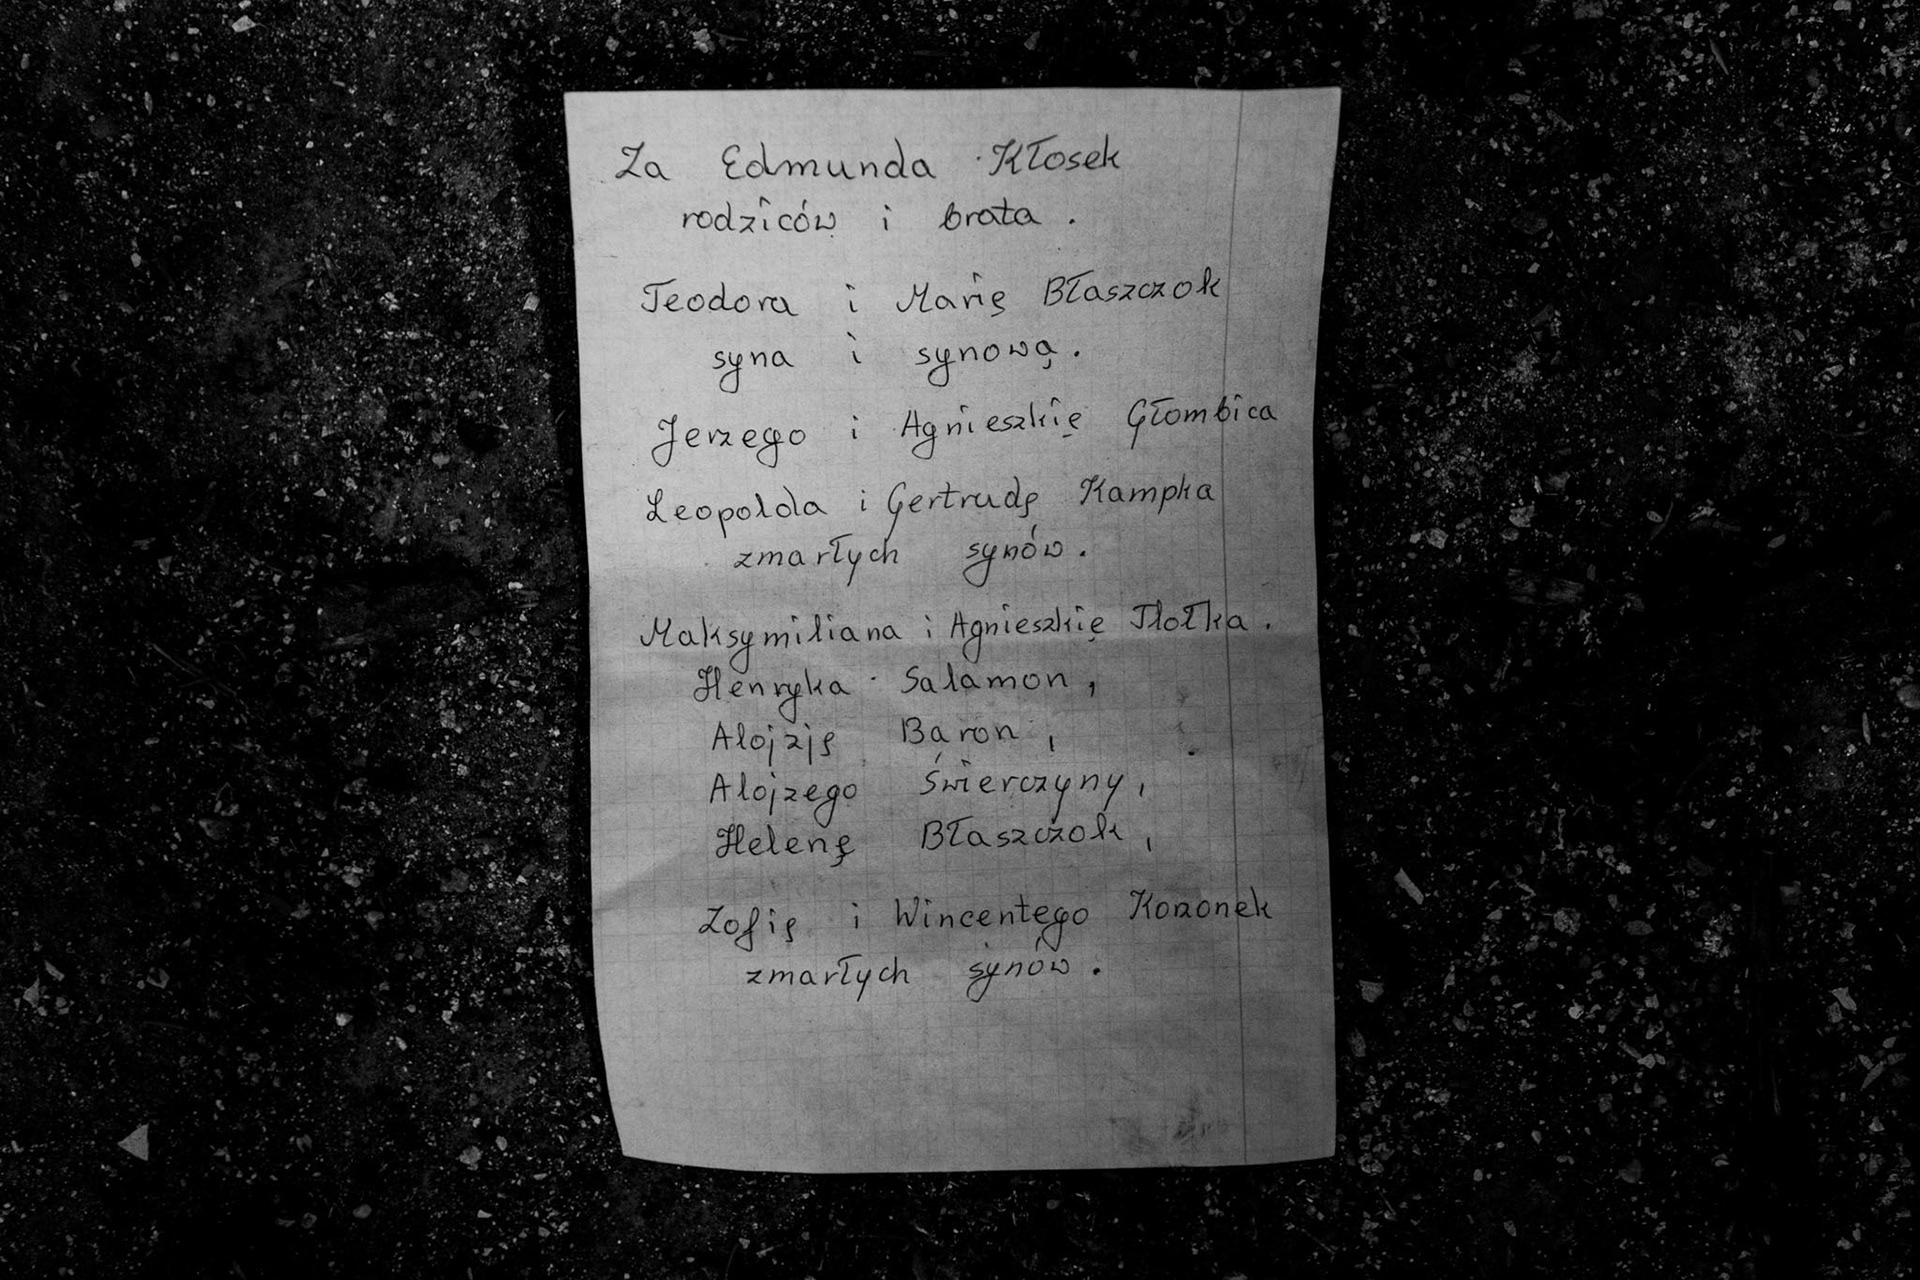 Za Edmunda Kłosek
rodziców i brata .
Teodora i Marię Błaszczok
syna i synową .
Jerzego i Agnieszkię Głombica
Leopolda i Gertrudę Kampka
zmarłych synów .
Maksymiliana i Agnieszkię Tłotka .
Henryka Salamon ,
Alojzję Baron ,
Alojzego Świerczyny ,
Helenę Błaszczok ,
Zofię i Wincentego Korzonek
zmarłych synów .